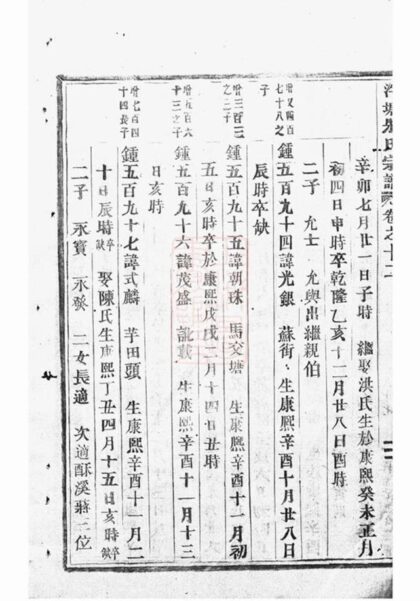 宗譜卷之十二
辛卯七月廿一日子時　繼娶洪氏生於康熙癸未正月
初四日申時卒乾隆乙亥十二月廿八日酉時
二子　允士　允與出繼親伯
增又四百七十八之子
鍾五百九十四諱光銀　蘇衖　生康熙辛酉十月廿八日
辰時卒缺
增三百三之二子
鍾五百九十五諱朝珠　馬交塘　生康熙辛酉十一月初
五日亥時卒於康熙戊戌二月十四日丑時
增五百六十三之子
鍾五百九十六諱茂盛　訛載　生康熙辛酉十一月十三
日亥時
增七百四十四長子
鍾五百九十七諱式麟　芋田頭　生康熙辛酉十一月二
十日辰時卒缺　娶陳氏生康熙丁丑四月十五日亥時卒缺
二子　永寶　永發　二女長適　次適酥溪蔣三位